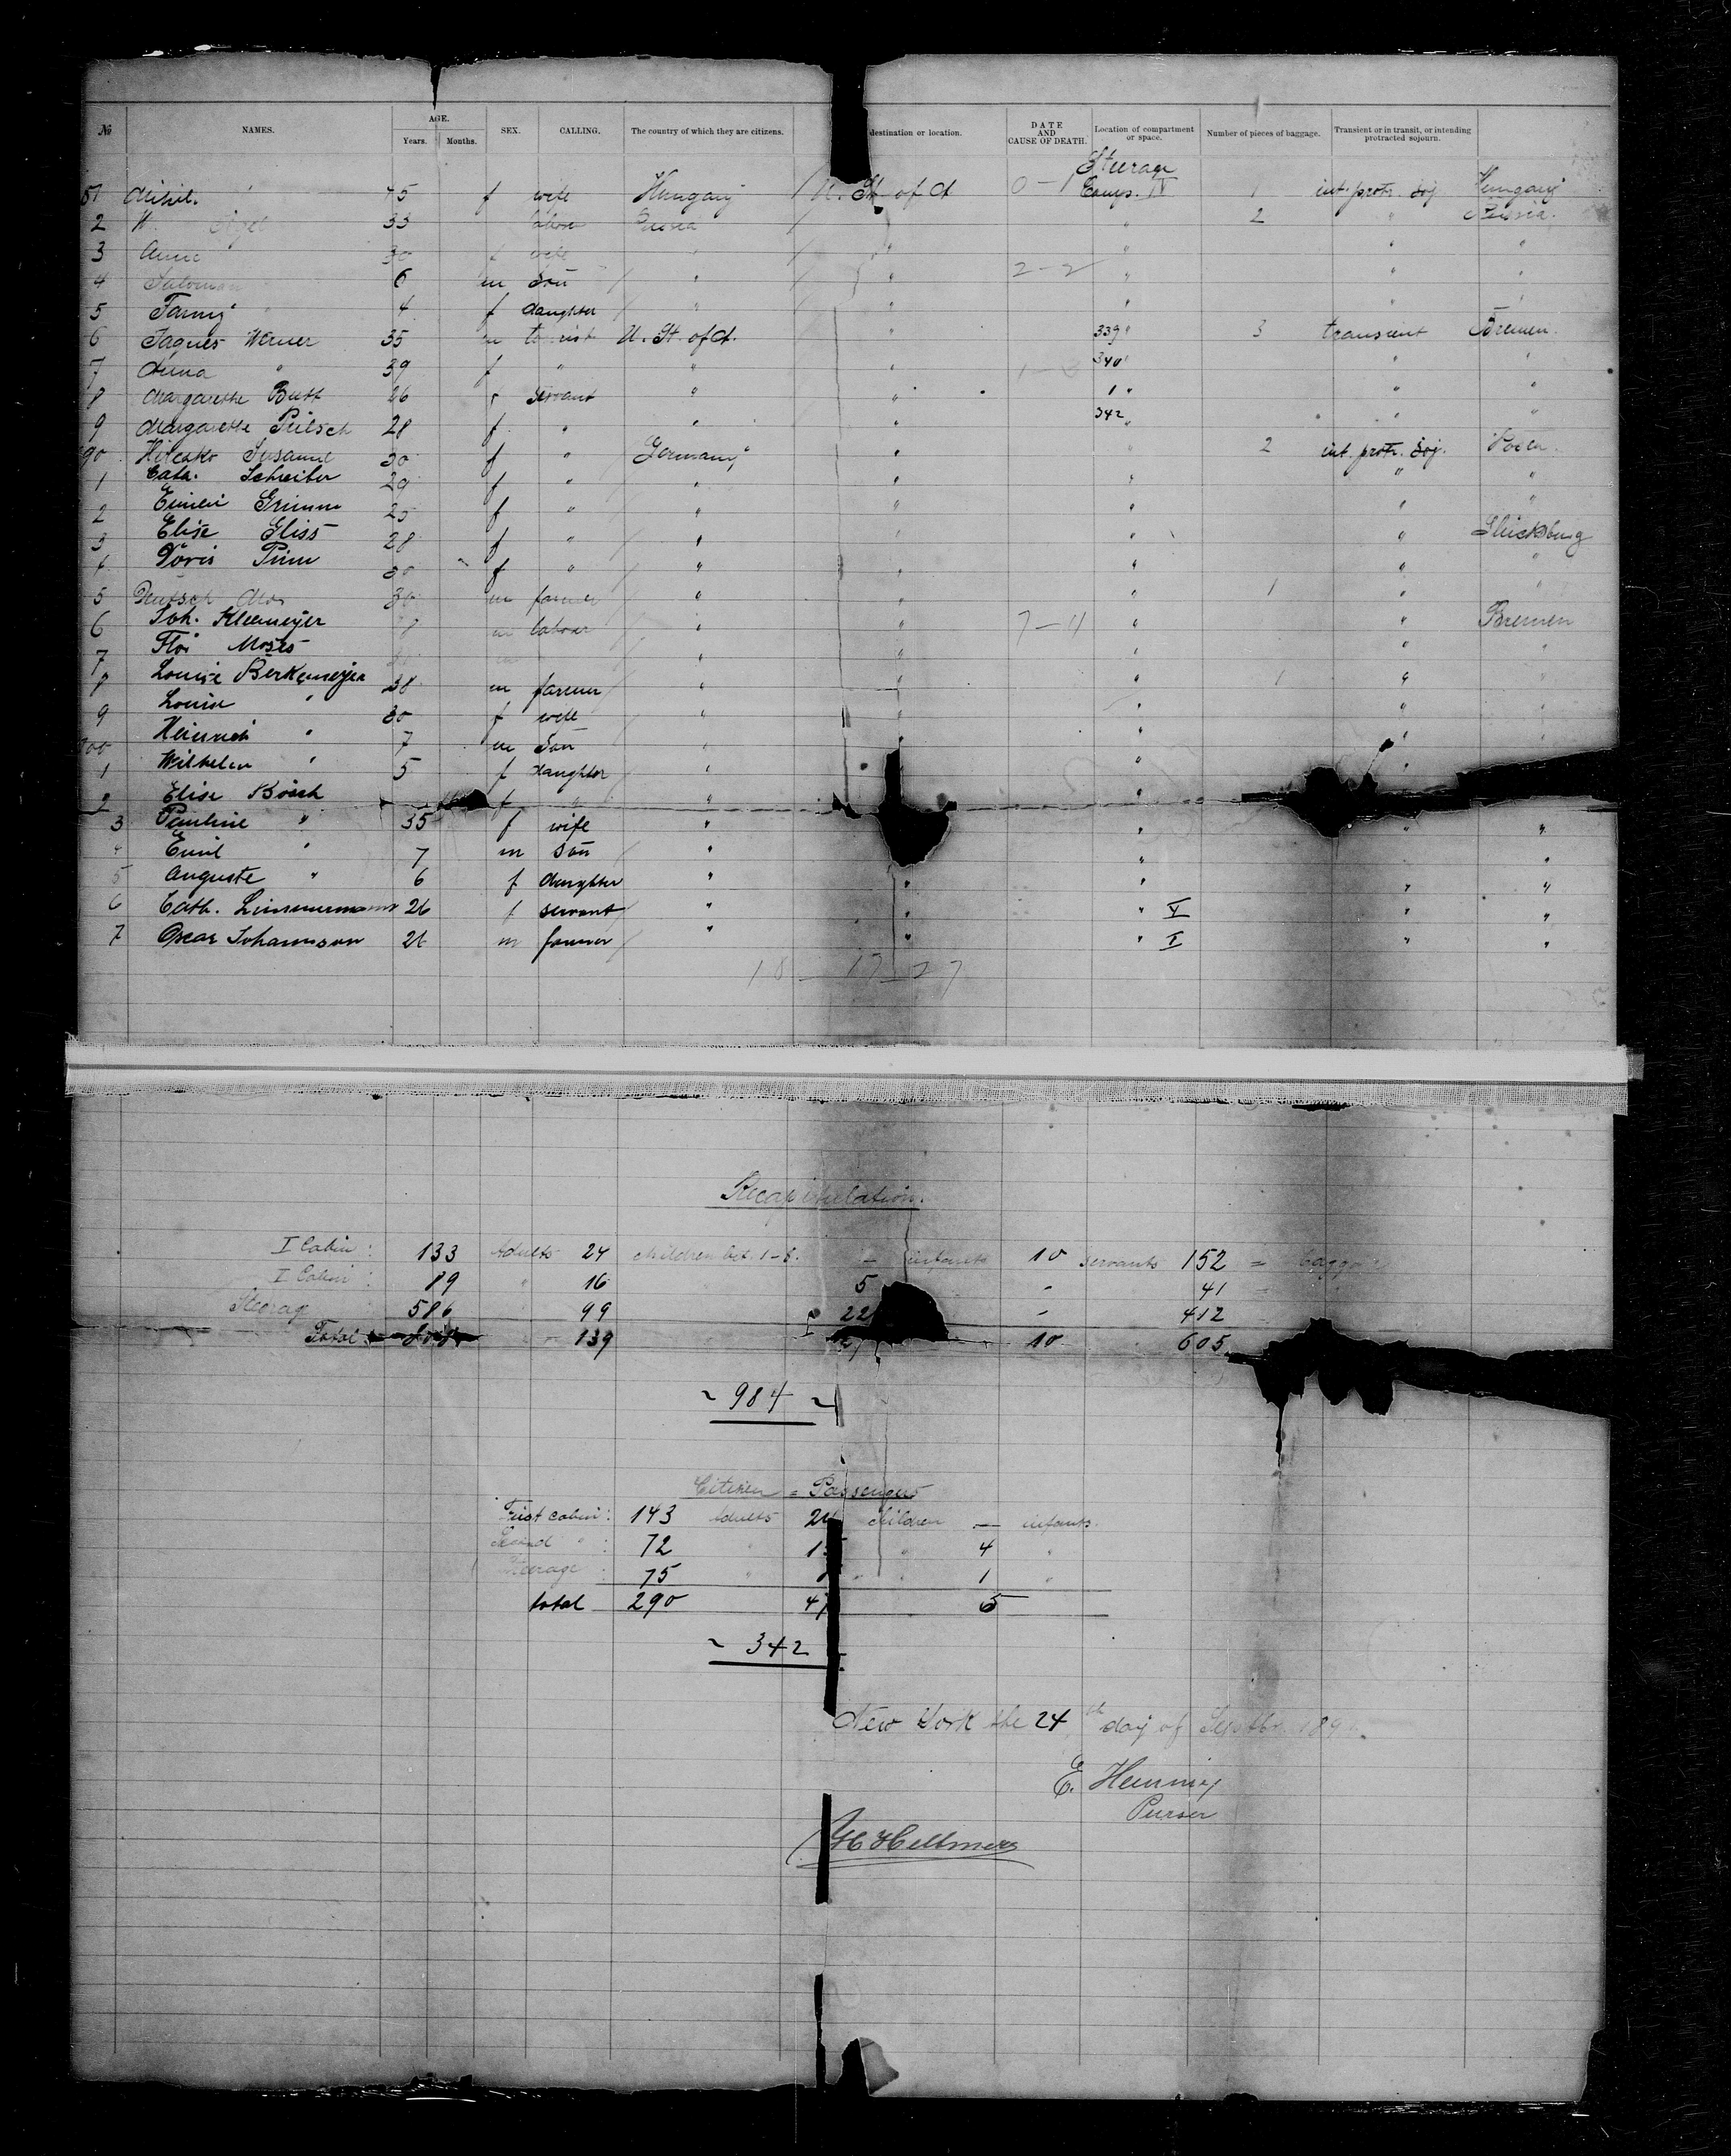 № NAMES. AGE. Years. Months. SEX. CALLING. The country of which they are citizens. destination or location. DATE AND CAUSE OF DEATH. Location of compartment or space. Number of pieces of baggage. Transient or in transit, or intending protracted sojourn.
Steerage
45 f wife Hungary U. St. of A 0 - 1 Comp. IV 1 int. protr. soj. Hungary
2 33 labour Russia " " 2 " Russia.
3 Anna 30 f wife " " " " "
4 Salomon 6 m son " " 2 - 2 " " "
5 Fanny " 4 f daughter " " " " "
6 Jaques Werner 35 m tourist U. St. of A. " 339 " 3 transient Bremen.
7 Anna " 39 f " " " 340 " " "
8 Margarethe Butt 26 f servant " " 1 " " "
9 Margarethe Pietsch 28 f " " " 342 " " "
90 Susanne 30 f " Germany " " 2 int. protr. soj.
1 Cath. Schreiber 29 f " " " " " "
2 Grimm 25 f " " " " " "
3 Elise Gliss 28 f " " " " " Glücksburg
4 Doris 30 f " " " " " "
5 Deutsch 30 m farmer " " " 1 " "
6 Joh. Kleemeyer 8 m labour " " 7 - 11 " " Bremen
7 Moses m " " " " "
8 Louise Berkemeyer 38 m farmer " " " 1 " "
9 Louise " 30 f wife " " " " "
700 Heinrich " 7 m son " " " "
1 Wilhelm " 5 f daughter " " "
2 Elise Bosch f " " "
3 Pauline " 35 f wife " " " "
4 Emil " 7 m son " " "
5 Auguste " 6 f daughter " " " " "
6 Cath. Limmermann 26 f servant " " " V " "
7 Oscar Johannson 26 m farmer " " " I " "
18 - 17 27
Recapitulation.
I Cabin : 133 Adults 24 children bet. 1-8. — infants 10 servants 152 = baggage
I Cabin : 89 " 16 5 - 41
Steerage 586 99 22 - 412
Total 139 27 10 605
~ 984 ~
Citizen = Passengers
First cabin : 143 Adults 24 children — infants.
Second " : 72 " " 4 "
Steerage : 75 " " 1 "
total 290 47 5
~ 342
New York the 24th day of Septbr. 189
E. Henning
Purser
H Hellmers